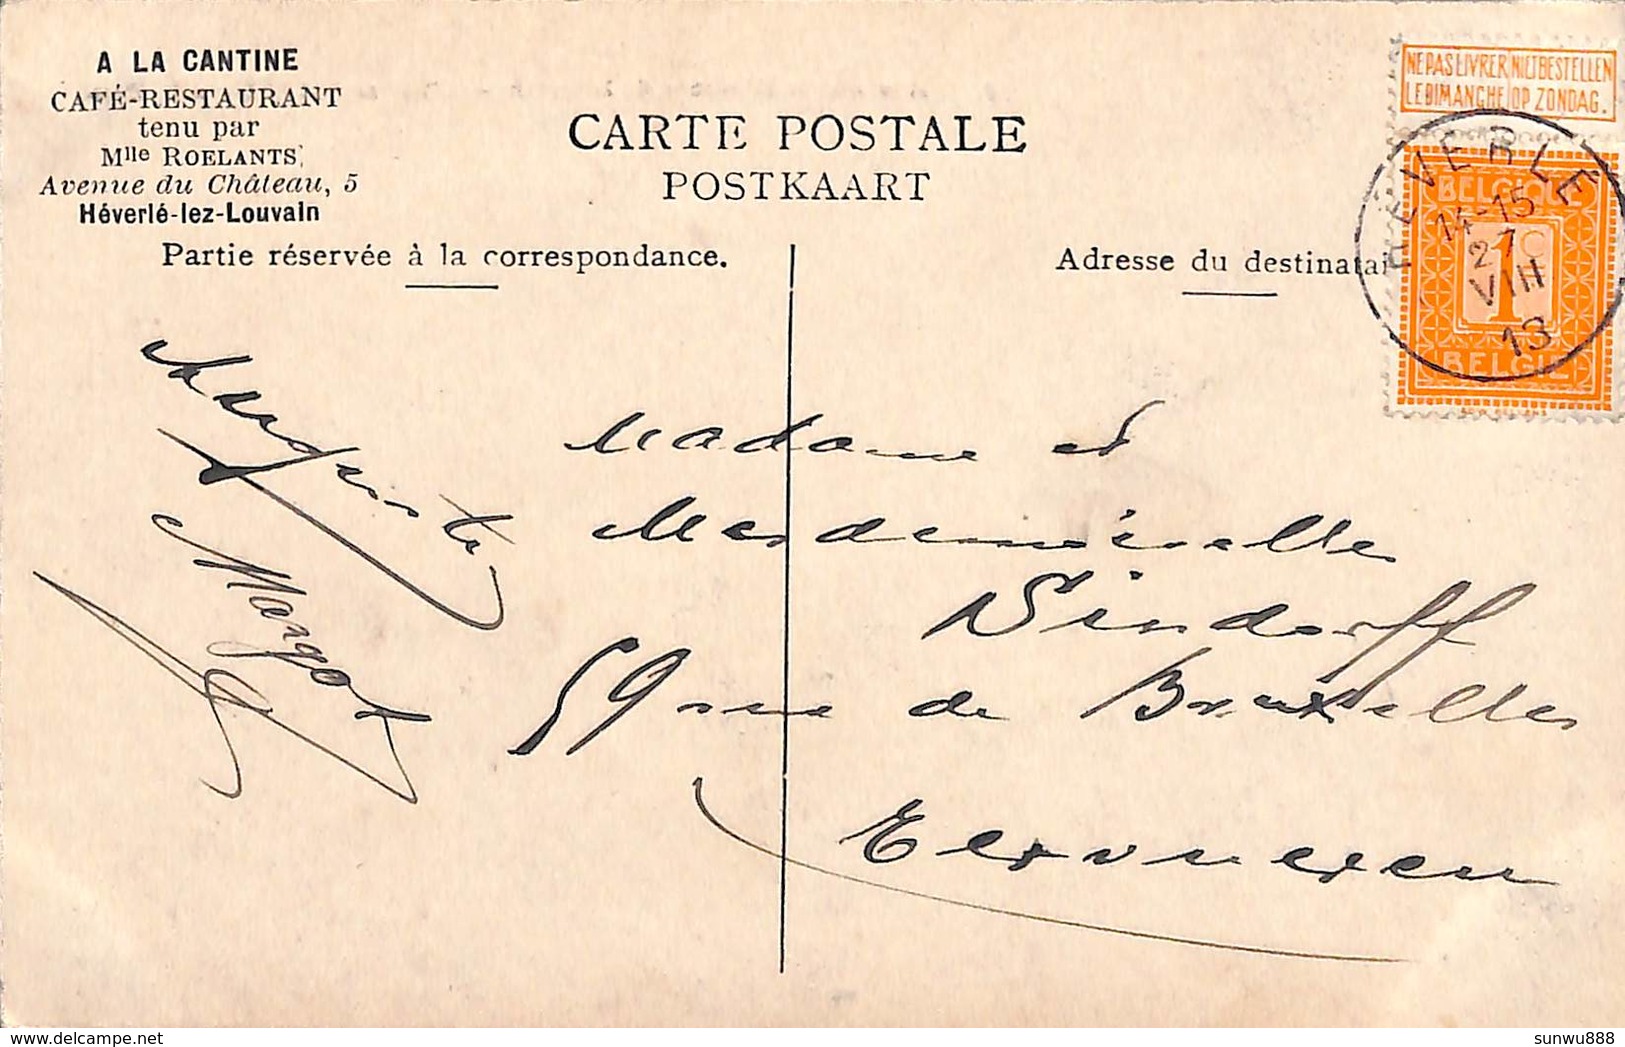 A LA CANTINE
CAFÉ-RESTAURANT
tenu par
Mlle ROELANTS,
Avenue du Château, 5
Héverlé-lez-Louvain
CARTE POSTALE
POSTKAART
Partie réservée à la correspondance.
Adresse du destinatai
NE PAS LIVRER NIET BESTELLEN
LE DIMANCHE OP ZONDAG.
BELGIQUE
1C
BELGIË
HEVERLE
14-15
27
VIII
13
Auguste
Margot
Madame et
Mesdemoiselles
Dindorff
59 rue de Bruxelles
sunwu888